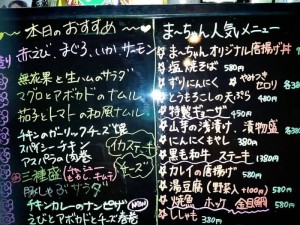 本日のおすすめ
赤えび、まぐろ、いか、サーモン
無花果と生ハムのサラダ
マグロとアボカドのナムル
茄子とトマトの和風ナムル
チキンのガーリックチーズ焼
スパイシーチキン
アスパラの肉巻
イカステーキ
チーズ
三種盛
豚しゃぶサラダ
チキンカレーのナンピザ
えびとアボカドとチーズ春巻
ま〜ちゃん人気メニュー
☆ま〜ちゃんオリジナル唐揚げ丼
☆塩焼そば 580円
☆ずりにんにく ☆やみつきセロリ
☆とうもろこしの天ぷら 480円
☆特製ギョーザ
☆山芋の浅漬け、漬物盛
☆にんにくもやし 380円
☆黒毛和牛ステーキ
☆カレイの唐揚げ 580円
☆湯豆腐(野菜入+100円) 580円
☆焼魚 ホッケ 金目鯛 580円
☆ししゃも 380円